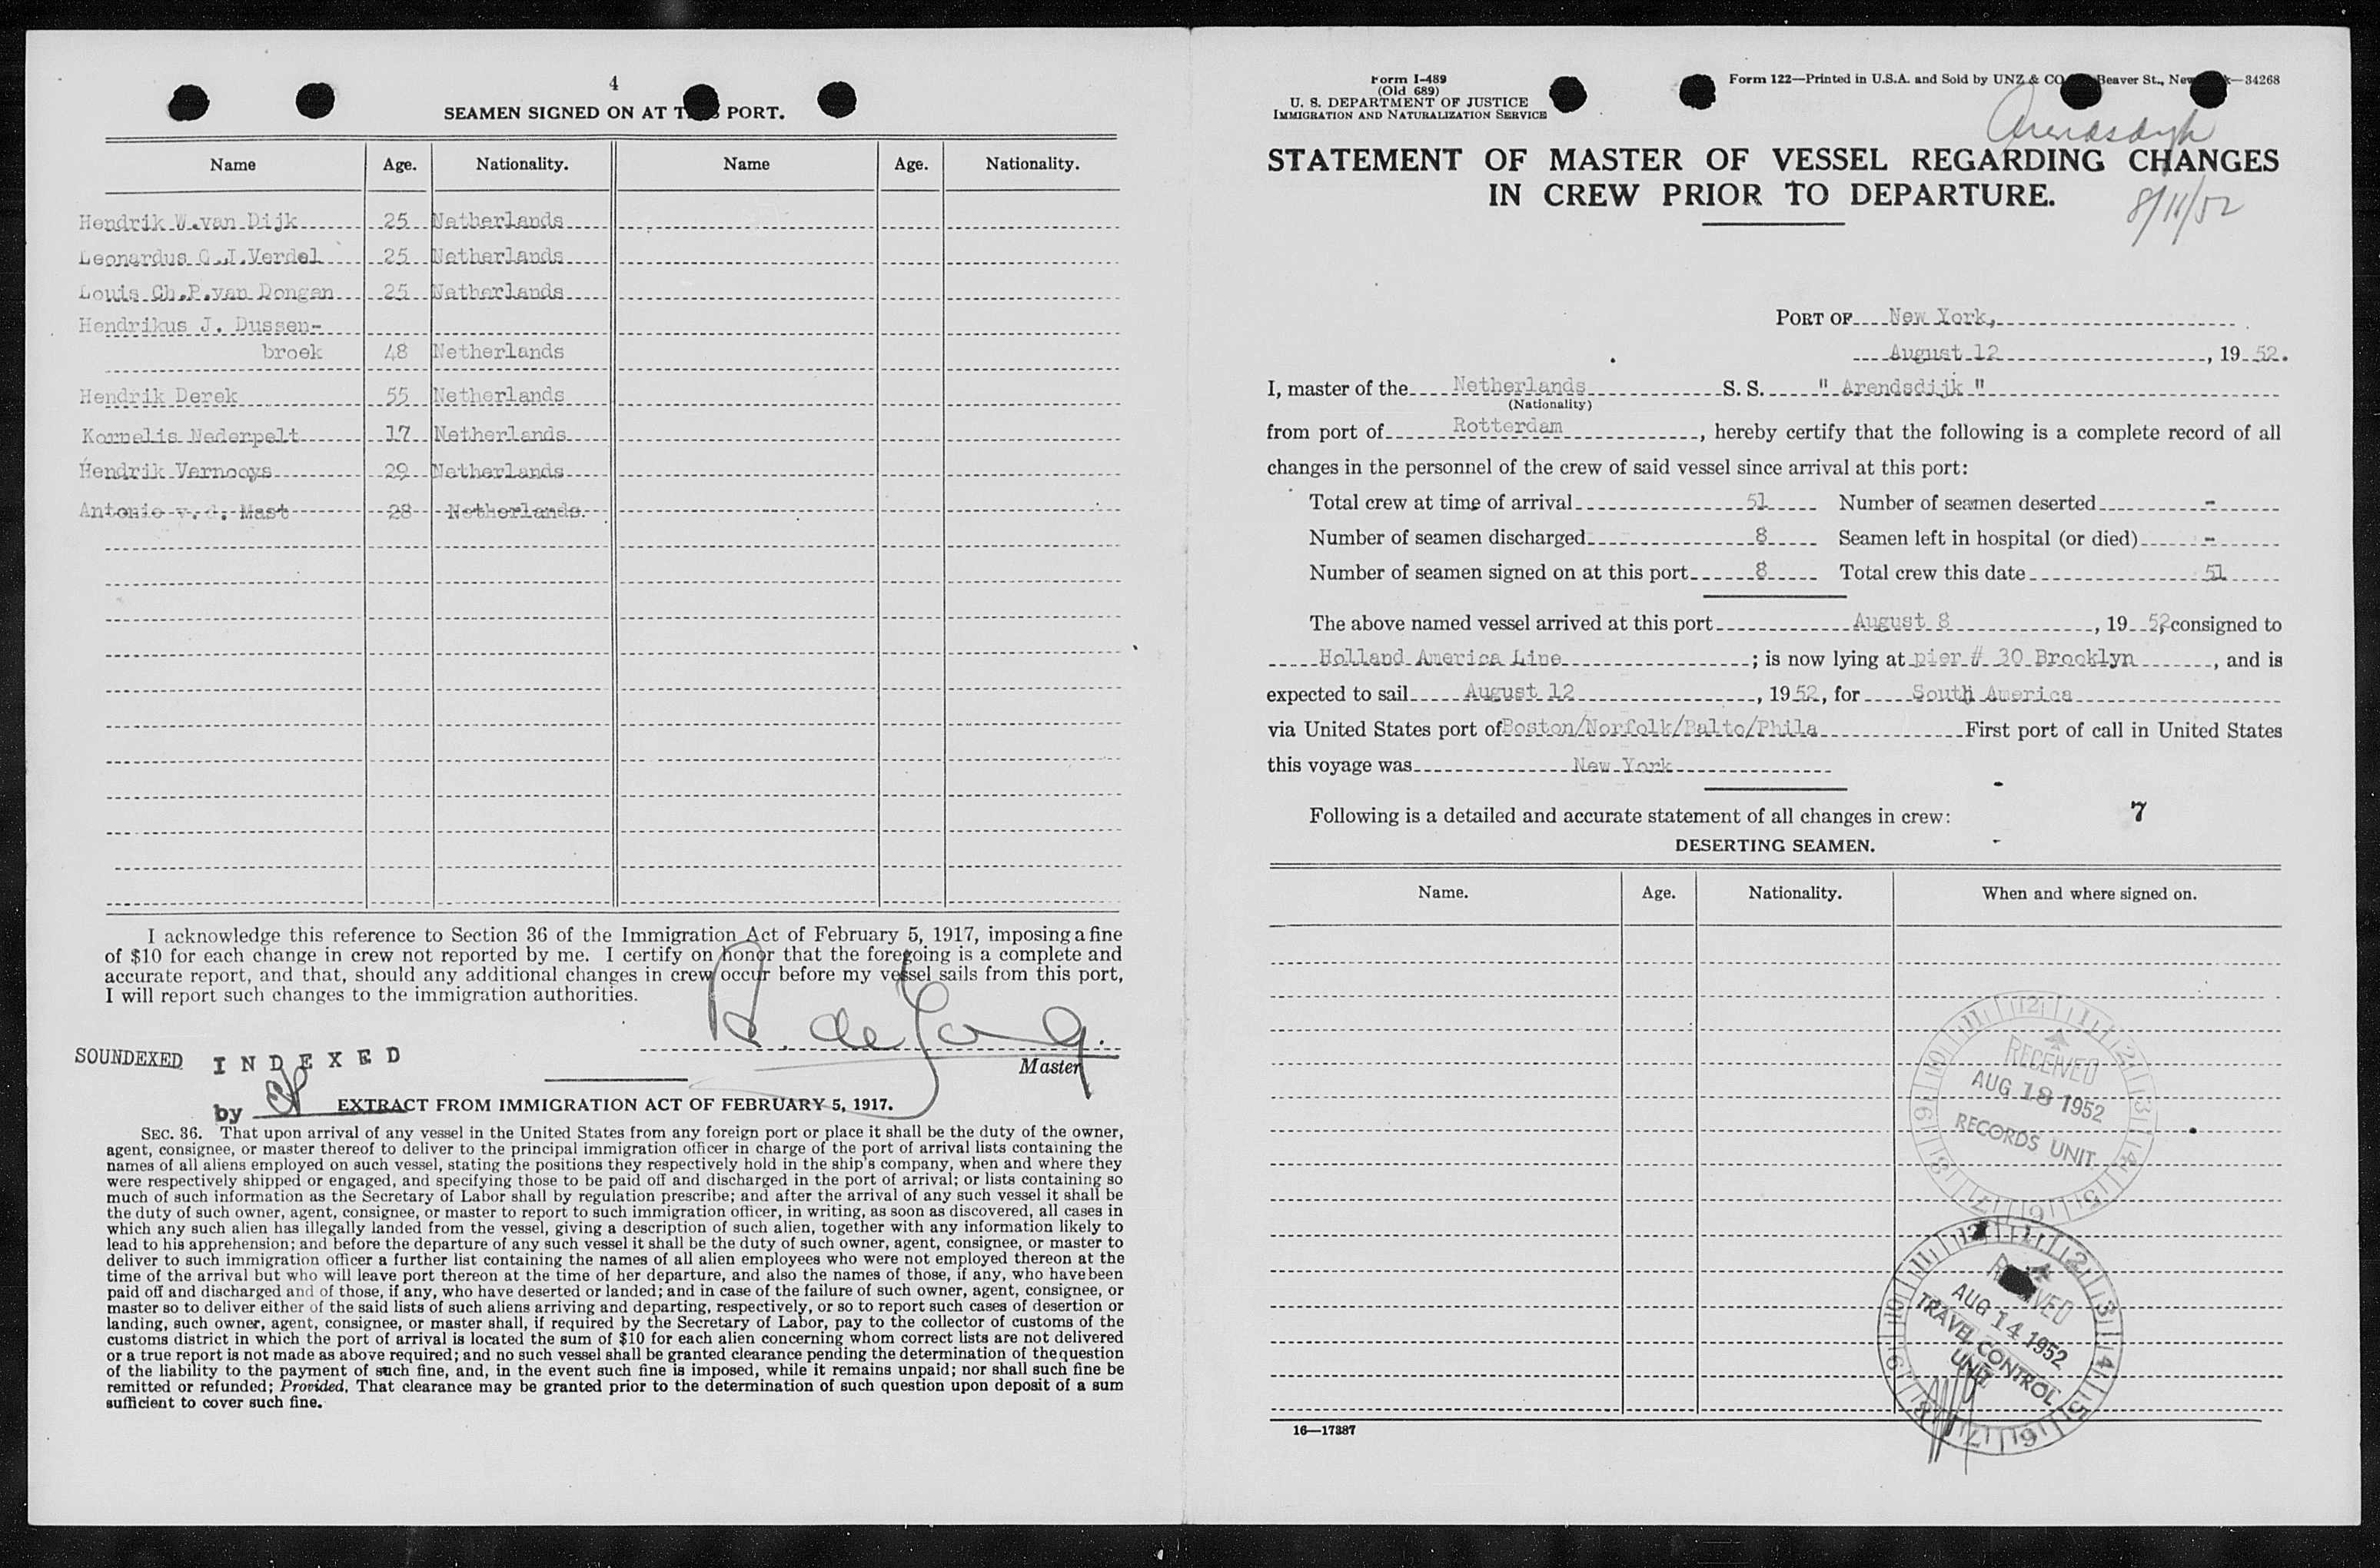 4
SEAMEN SIGNED ON AT PORT.
Name Age. Nationality. Name Age. Nationality.
Hendrik W.van Dijk 25 Netherlands
Leonardus G.J.Verdel 25 Netherlands
Louis Ch.P.van Dongen 25 Netherlands
Hendrikus J. Dussen-
broek 48 Netherlands
Hendrik Derek 55 Netherlands
Kornelis Nederpelt 17 Netherlands
Hendrik Vernooys 29 Netherlands
Antonie v. d. Mast 28 Netherlands.
I acknowledge this reference to Section 36 of the Immigration Act of February 5, 1917, imposing a fine
of $10 for each change in crew not reported by me. I certify on honor that the foregoing is a complete and
accurate report, and that, should any additional changes in crew occur before my vessel sails from this port,
I will report such changes to the immigration authorities.
R. de Jong.
Master
SOUNDEXED INDEXED
by
EXTRACT FROM IMMIGRATION ACT OF FEBRUARY 5, 1917.
SEC. 36. That upon arrival of any vessel in the United States from any foreign port or place it shall be the duty of the owner,
agent, consignee, or master thereof to deliver to the principal immigration officer in charge of the port of arrival lists containing the
names of all aliens employed on such vessel, stating the positions they respectively hold in the ship's company, when and where they
were respectively shipped or engaged, and specifying those to be paid off and discharged in the port of arrival; or lists containing so
much of such information as the Secretary of Labor shall by regulation prescribe; and after the arrival of any such vessel it shall be
the duty of such owner, agent, consignee, or master to report to such immigration officer, in writing, as soon as discovered, all cases in
which any such alien has illegally landed from the vessel, giving a description of such alien, together with any information likely to
lead to his apprehension; and before the departure of any such vessel it shall be the duty of such owner, agent, consignee, or master to
deliver to such immigration officer a further list containing the names of all alien employees who were not employed thereon at the
time of the arrival but who will leave port thereon at the time of her departure, and also the names of those, if any, who have been
paid off and discharged and of those, if any, who have deserted or landed; and in case of the failure of such owner, agent, consignee, or
master so to deliver either of the said lists of such aliens arriving and departing, respectively, or so to report such cases of desertion or
landing, such owner, agent, consignee, or master shall, if required by the Secretary of Labor, pay to the collector of customs of the
customs district in which the port of arrival is located the sum of $10 for each alien concerning whom correct lists are not delivered
or a true report is not made as above required; and no such vessel shall be granted clearance pending the determination of the question
of the liability to the payment of such fine, and, in the event such fine is imposed, while it remains unpaid; nor shall such fine be
remitted or refunded; Provided, That clearance may be granted prior to the determination of such question upon deposit of a sum
sufficient to cover such fine.
Form I-489
(Old 689)
U. S. DEPARTMENT OF JUSTICE
IMMIGRATION AND NATURALIZATION SERVICE
Form 122—Printed in U.S.A. and Sold by UNZ & CO Beaver St., New —34268
Arendsdyk
STATEMENT OF MASTER OF VESSEL REGARDING CHANGES
IN CREW PRIOR TO DEPARTURE.
8/11/52
PORT OF New York,
August 12, 1952.
I, master of the Netherlands S. S. " Arendsdijk "
(Nationality)
from port of Rotterdam, hereby certify that the following is a complete record of all
changes in the personnel of the crew of said vessel since arrival at this port:
Total crew at time of arrival 51 Number of seamen deserted -
Number of seamen discharged 8 Seamen left in hospital (or died) -
Number of seamen signed on at this port 8 Total crew this date 51
The above named vessel arrived at this port August 8, 1952, consigned to
Holland America Line; is now lying at pier # 30 Brooklyn, and is
expected to sail August 12, 1952, for South America
via United States port of Boston/Norfolk/Balto/Phila First port of call in United States
this voyage was New York
Following is a detailed and accurate statement of all changes in crew: 7
DESERTING SEAMEN.
Name. Age. Nationality. When and where signed on.
12 1 2 3 4 5 6 7 8 9 10 11
RECEIVED
AUG 18 1952
RECORDS UNIT
12 1 2 3 4 5 6 7 8 9 10 11
RECEIVED
AUG 14 1952
TRAVEL CONTROL
UNIT
16—17387